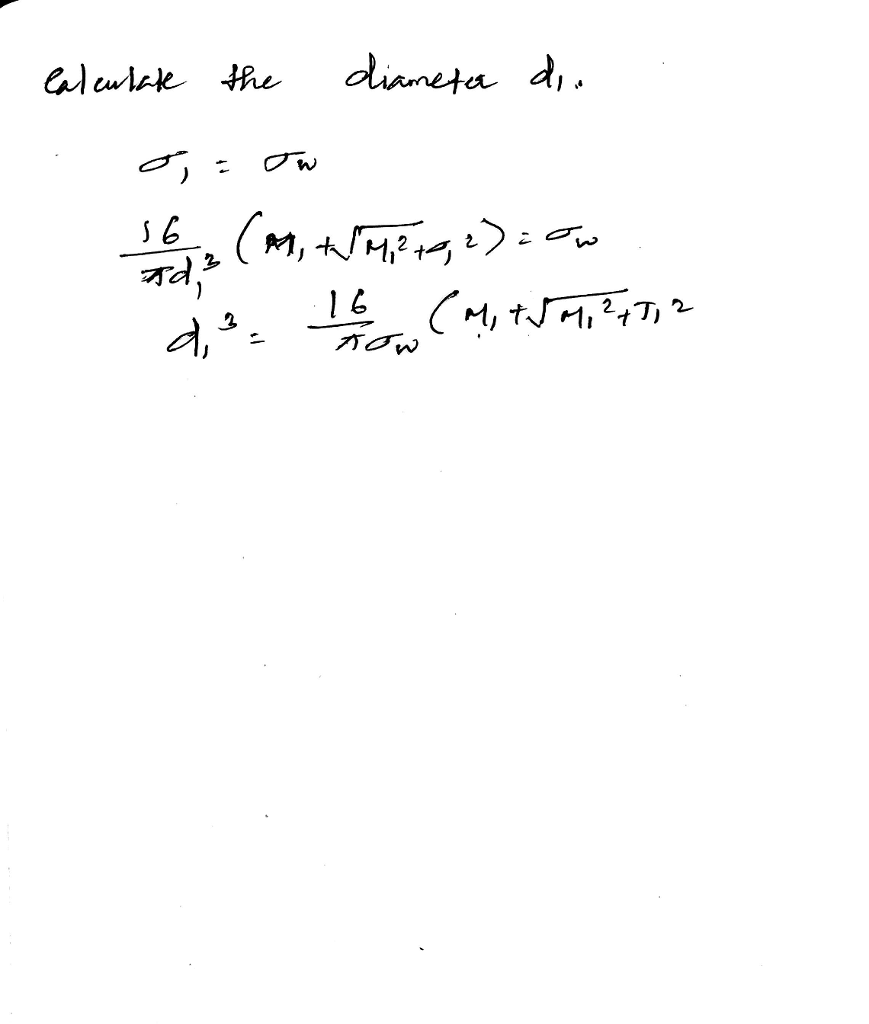 Calculate the diameter d₁.
σ₁ = σw
16/πd₁³ (M₁ + √M₁² + T₁²) = σw
d₁³ = 16/πσw (M₁ + √M₁² + T₁²